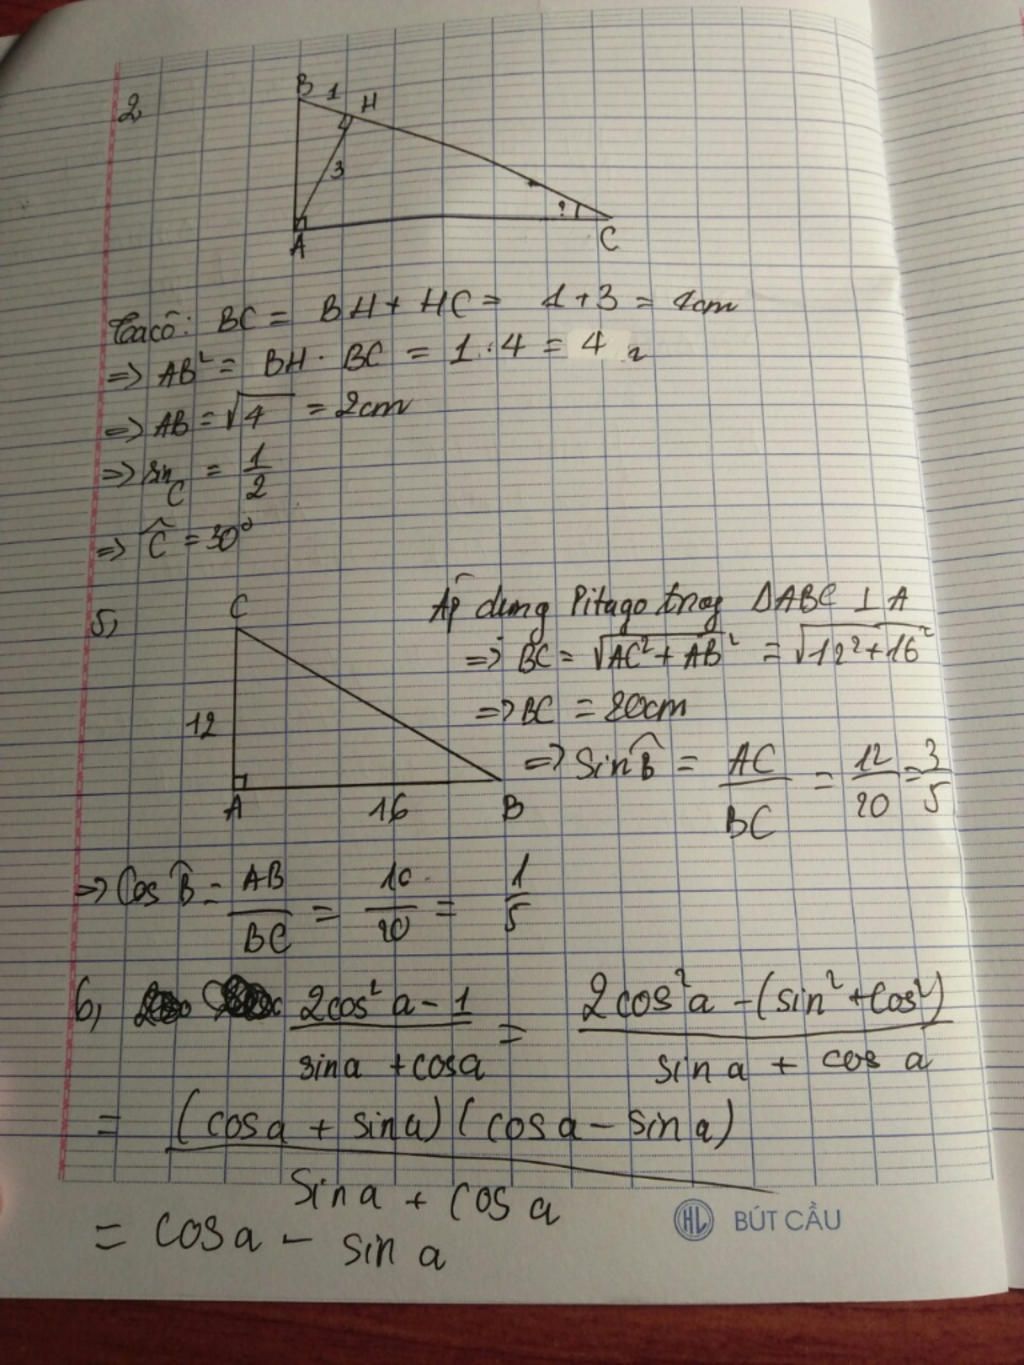 2
B 1 H
3
?
A C
Ta có: BC = BH + HC = 1+3 = 4cm
=> AB² = BH . BC = 1.4 = 4
=> AB = √4 = 2cm
=> sin C = 1/2
=> Ĉ = 30°
5,
C
12
A 16 B
Áp dụng Pitago trog ΔABC ⊥ A
=> BC = √AC² + AB² = √12² + 16²
=> BC = 20cm
=> Sin B̂ = AC/BC = 12/20 = 3/5
=> Cos B̂ = AB/BC = 10/20 = 1/5
6, 2cos²a - 1 / sina + cosa = 2cos²a - (sin² + cos²) / sina + cos a
= (cosa + sina)(cosa - sina) / sina + cos a
= cosa - sin a
HL BÚT CẦU